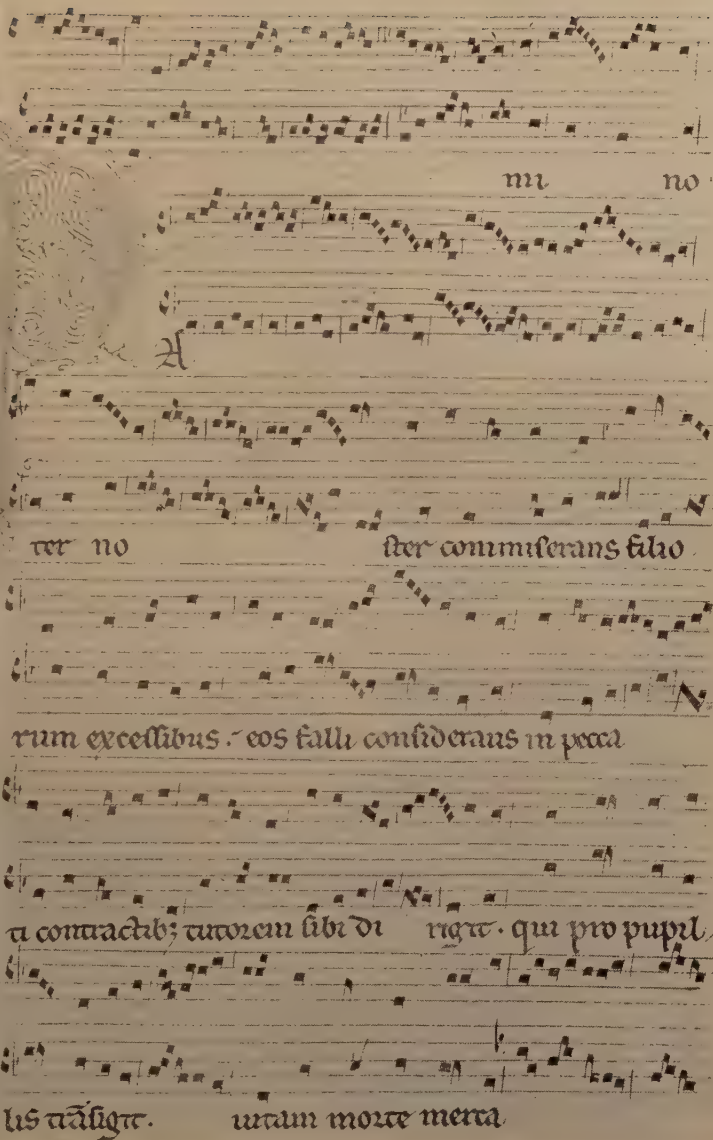 mi no
A
ter no ster commiserans filio
rum excessibus. eos falli considerans in pecca
ti contractibꝫ tutorem sibi di rigit. qui pro pupil
lis trãsigit. uitam morte merca